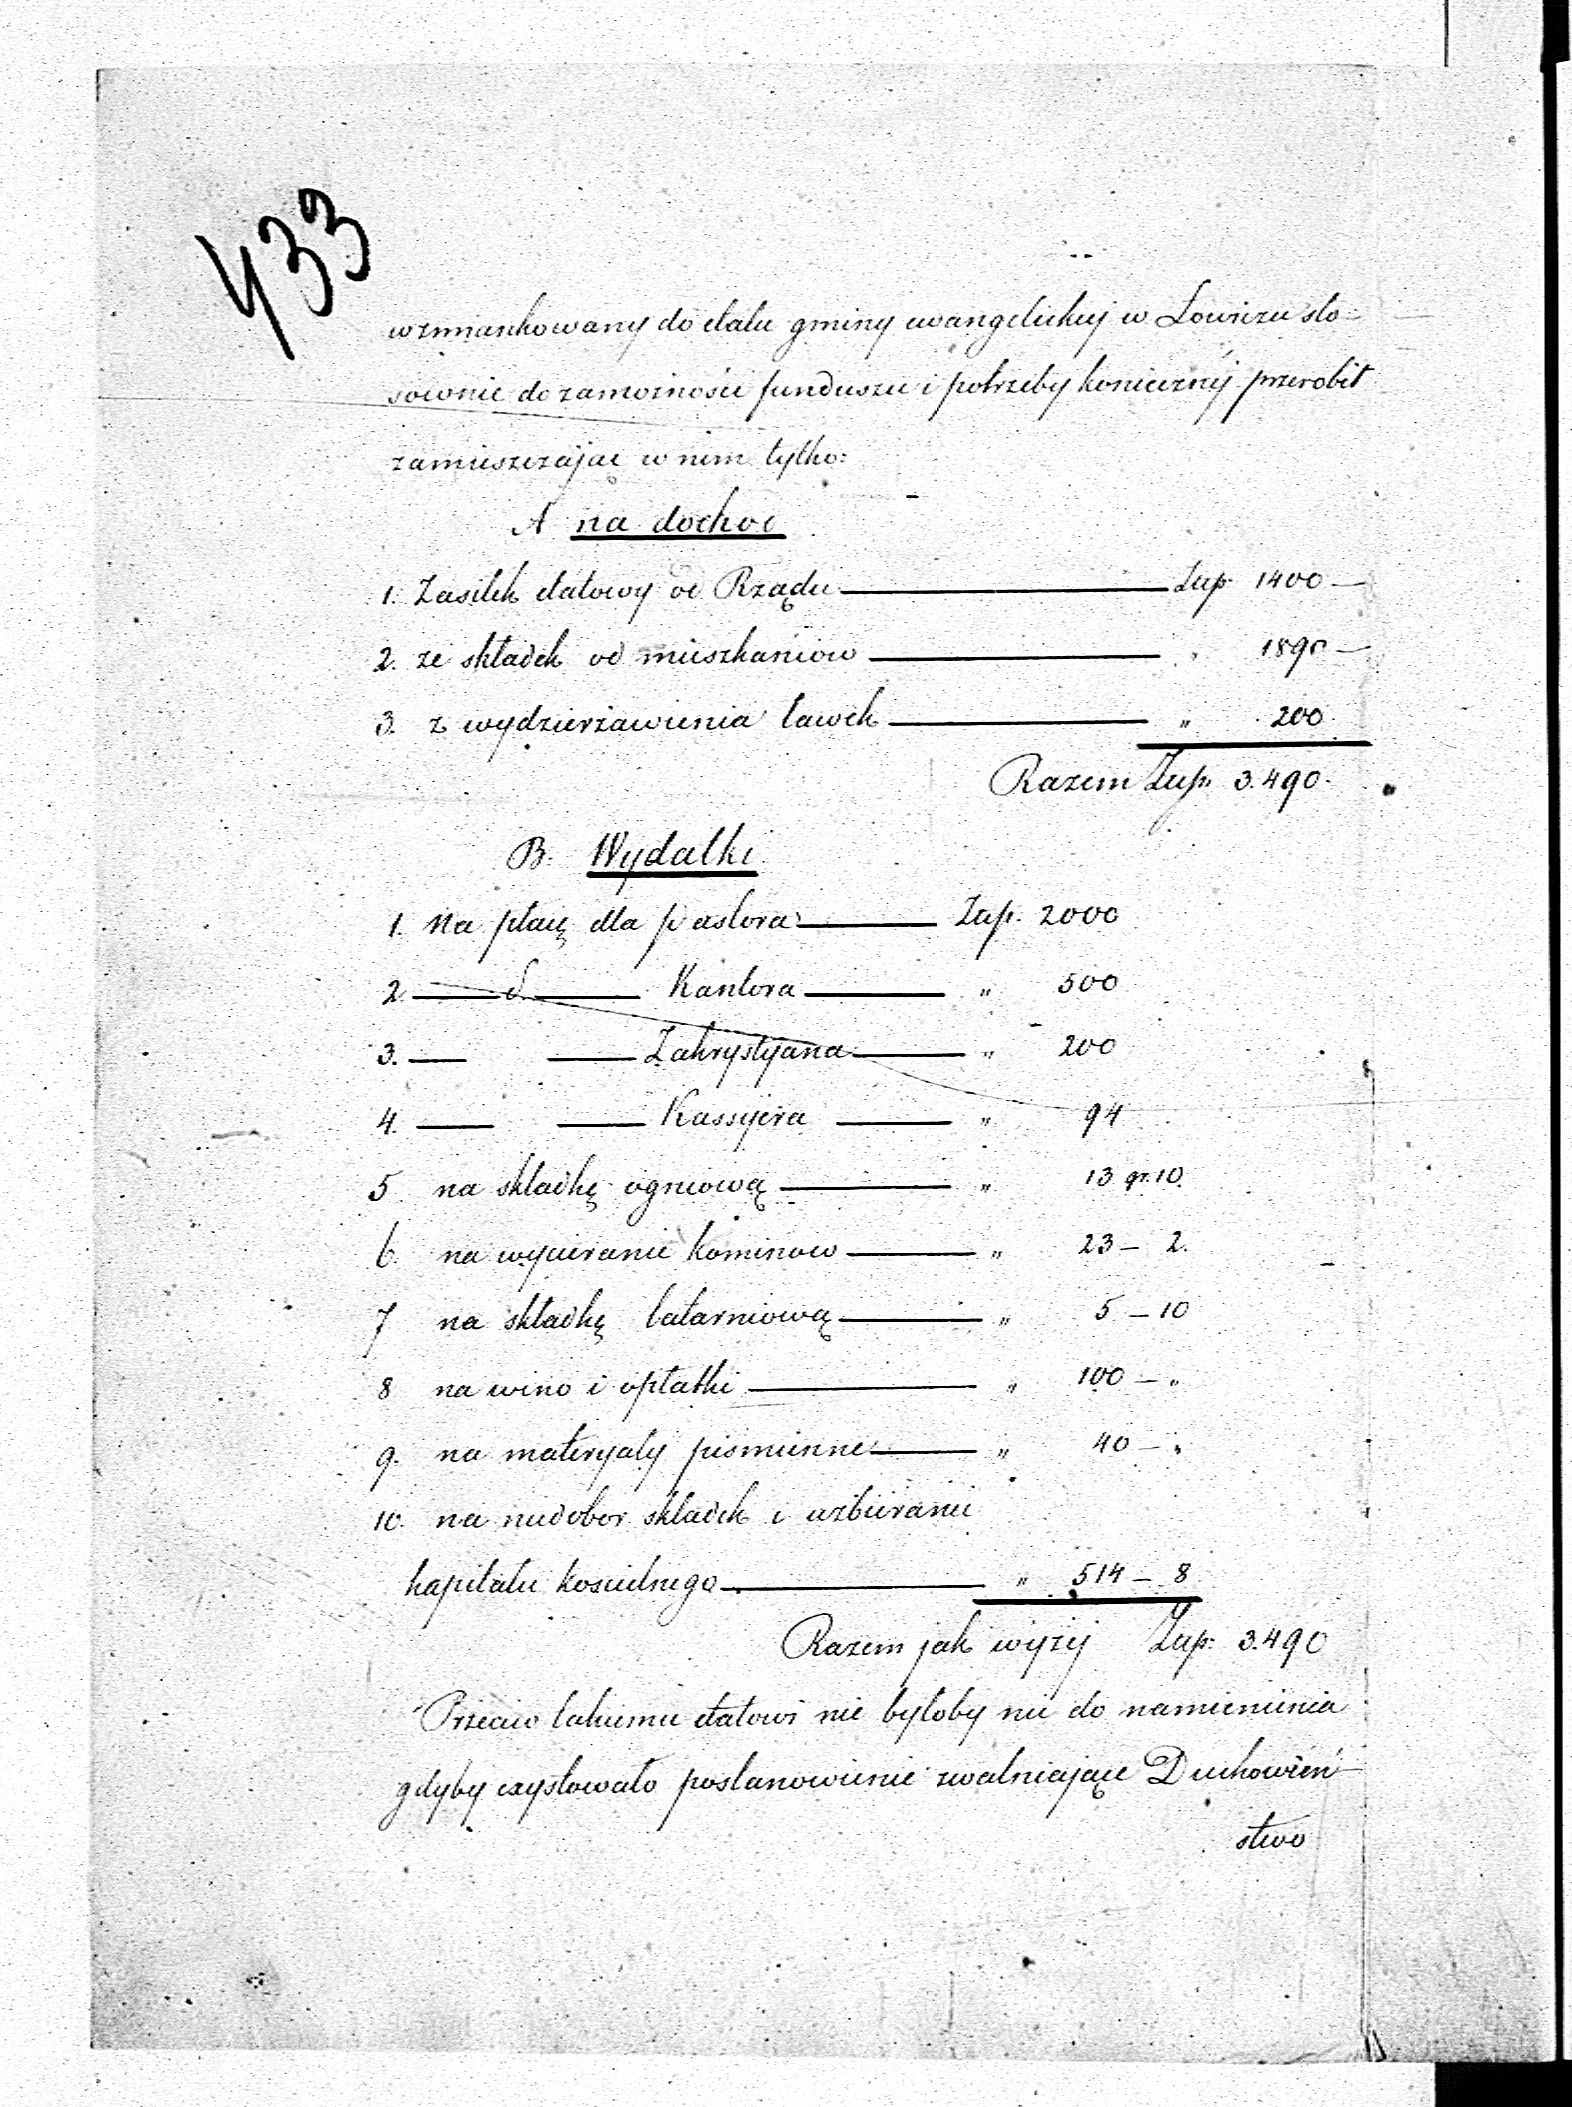 433
wzmiankowany do etatu gminy ewangelickiej w Łowiczu sto-
sownie do zamożności funduszu i potrzeby koniecznéj przerobił
zamieszczając w nim tylko:
A na dochod
1. Zasiłek etatowy od Rządu — Złp. 1400 —
2. ze składek od mieszkańców — " 1890 —
3. z wydzierżawienia ławek — " 200
Razem Złp. 3.490.
B. Wydatki
1. Na płacę dla pastora — Złp. 2000
2. — d. — Kantora — " 500
3. — — Zakrystyana — " 200
4. — — Kassyera — " 94
5 na składkę ogniową — " 13 gr. 10.
6. na wycieranie kominow — " 23 — 2.
7 na składkę latarniową — " 5 — 10
8 na wino i opłatki — " 100 — "
9. na materyały piśmienne — " 40 — "
10. na niedobor składek i uzbieranie
kapitału kościelnego — " 514 — 8
Razem jak wyżéj Złp. 3.490
Przeciw takiemu etatowi nie byłoby nic do namienienia
gdyby exystowało postanowienie zwalniające Duchowień-
stwo